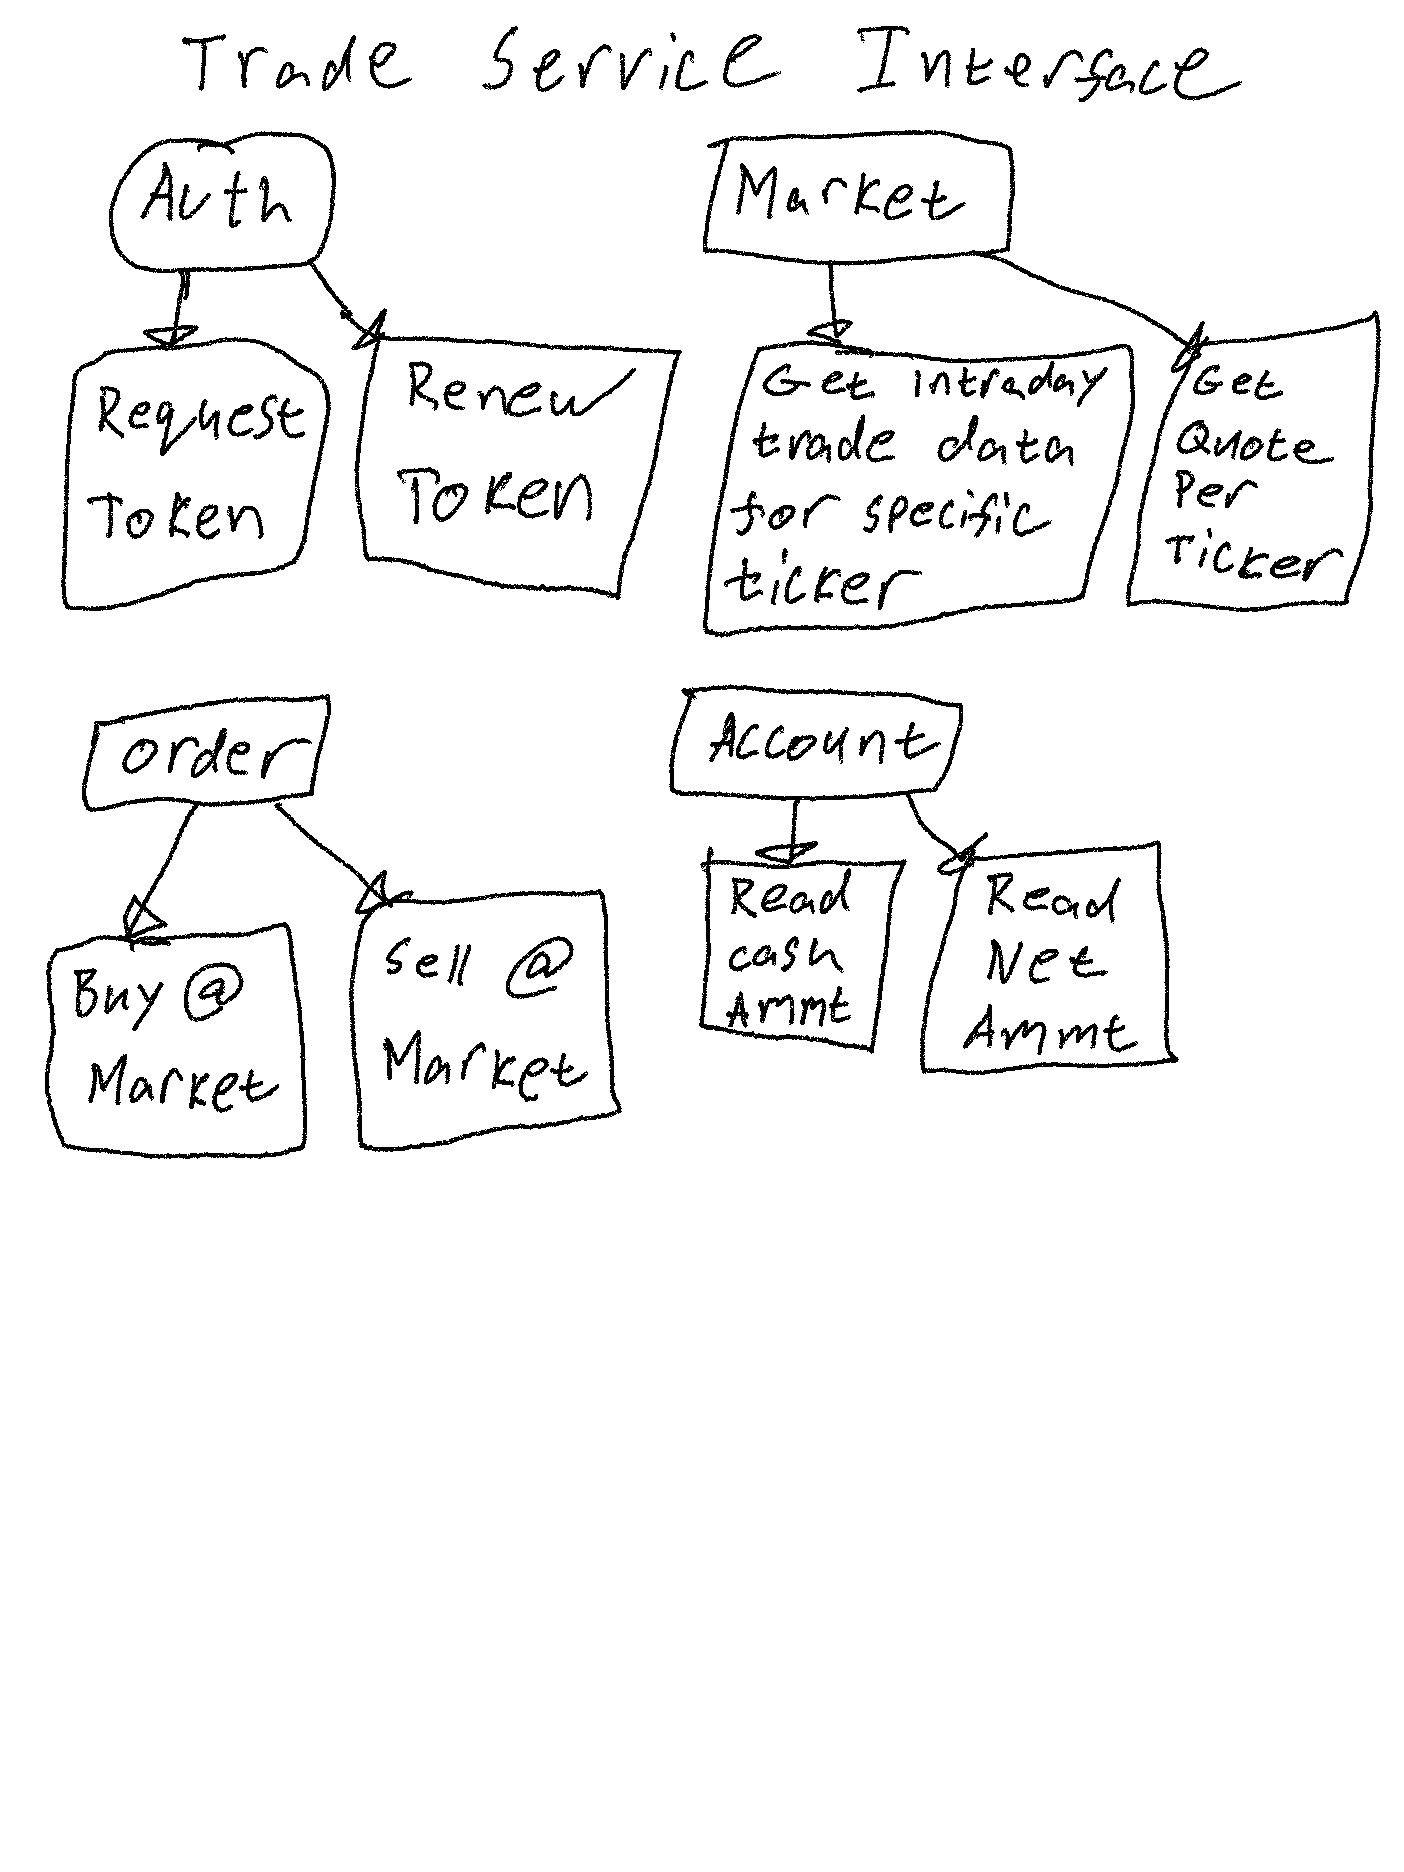 Trade Service Interface
Auth
Request
Token
Renew
Token
Market
Get intraday
trade data
for specific
ticker
Get
Quote
Per
Ticker
Order
Buy @
Market
Sell @
Market
Account
Read
cash
Ammt
Read
Net
Ammt